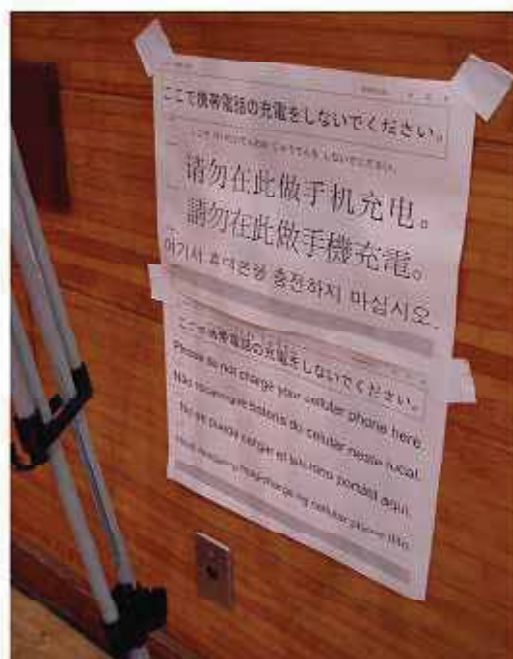 ここで携帯電話の充電をしないでください。
请勿在此做手机充电。
請勿在此做手機充電。
여기서 휴대전화 충전하지 마십시오.
ここで携帯電話の充電をしないでください。
Please do not charge your cellular phone here.
Não recarregue bateria do celular neste local.
No se puede cargar el teléfono portátil aquí.
cellular phone dito.